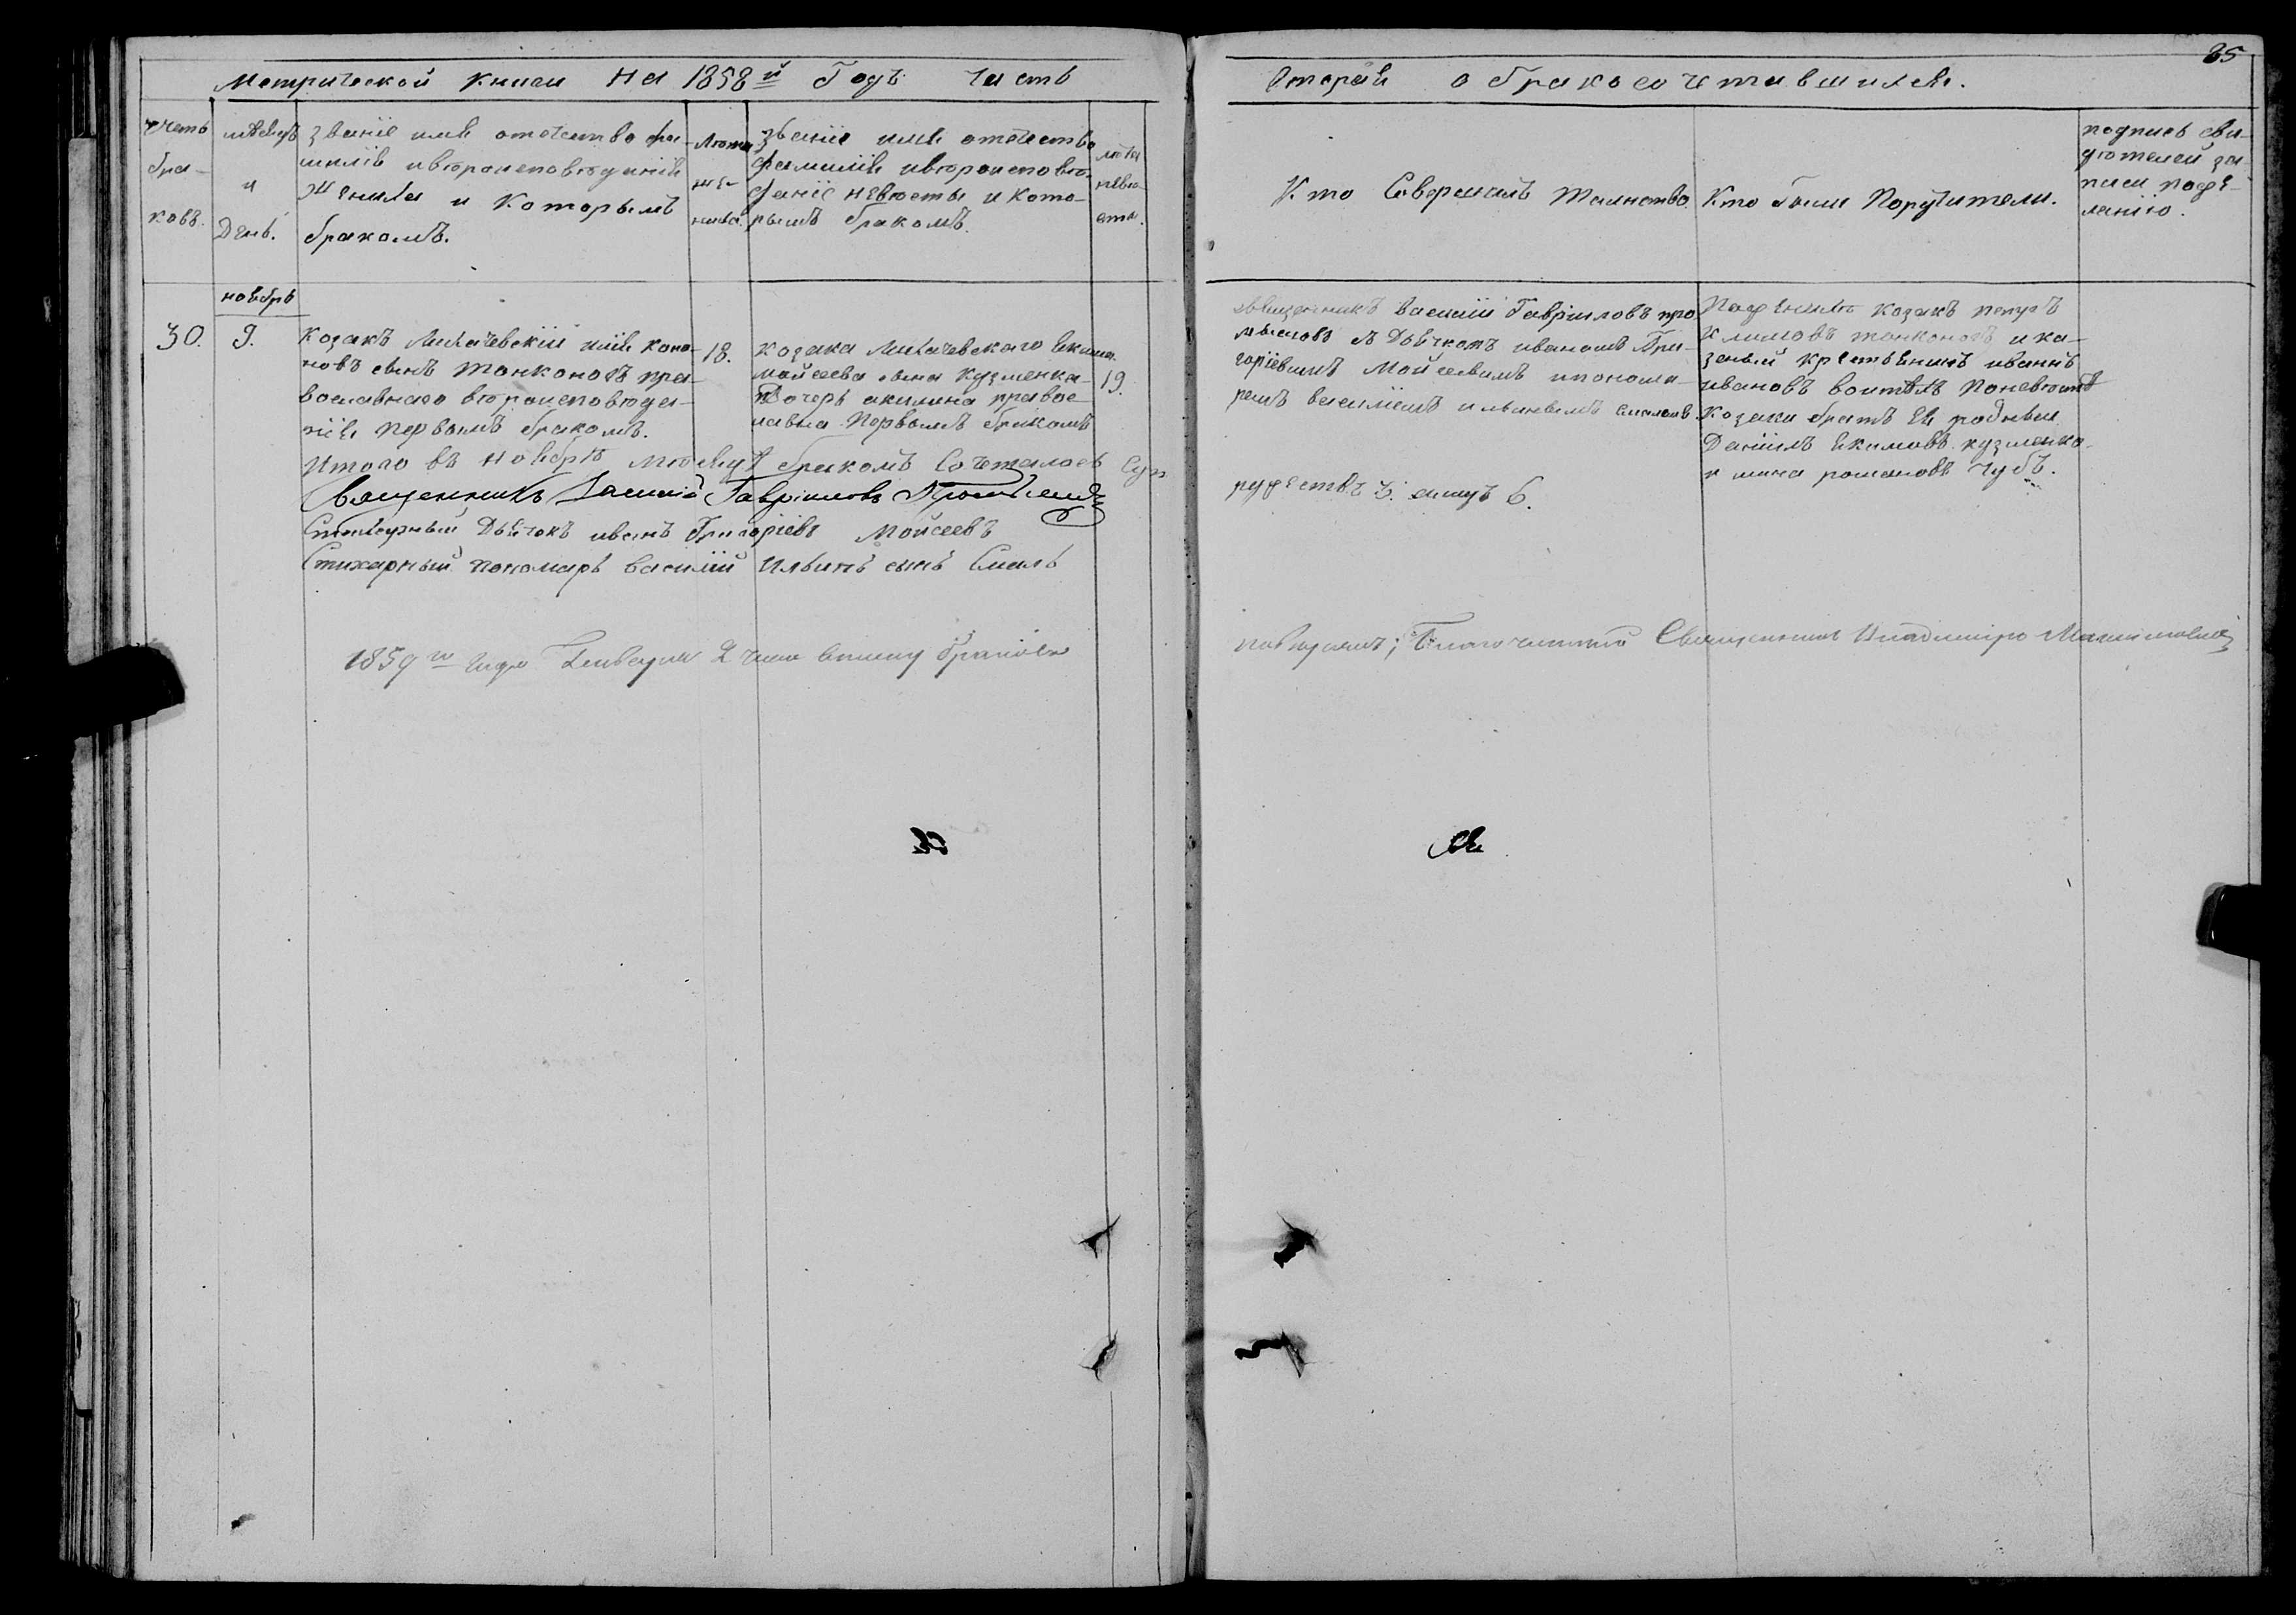 85
Метрической книги на 1858й Годъ Часть
Вторая о бракосочетавшихся.
Счетъ бра-
ковъ.
мѣсяцъ
и
День.
званіе имя отечество фа-
милія ивѣроисповѣданія
Жениха и Которымъ
бракомъ.
Лѣта
же-
ниха.
званіе имя отечество
фамилія ивѣроисповѣ-
даніе Невѣсты и Кото-
рымъ бракомъ.
лѣта
невѣ-
сты.
Кто Совершилъ Таинство.
Кто были Поручители.
подпись сви-
дѣтелей за-
писи поже-
ланію.
ноябрь
30.
9.
Козакъ Лихачевскій илія коно-
новъ сынъ Тонконогъ пра-
вославнаго вѣроисповѣда-
нія первымъ бракомъ.
18.
козака Лихачевского Екима
мойсеева сына Кузменка
Дочерь акилина правос-
лавна Первымъ бракомъ
19.
священникъ Василій Гавріиловъ про
съ Дьячкомъ иваномъ Гри-
горіевымъ Мойсеевымъ ипонома-
ремъ василіемъ ильинымъ
Пожениху козакъ петръ
климовъ тонконогъ и ка-
зеный крестьянинъ иванъ
ивановъ Поневѣстѣ
Козаки братъ Ея родный
Даніилъ Екимовъ кузменко
и мина романовъ Чубъ.
Итого въ Ноябрѣ мѣсяцѣ бракомъ Сочеталось Суп
ружествъ 3. лицъ 6.
Священникъ Василій Гавріиловъ
Стихарный Дьячокъ иванъ Григоріевъ Мойсеевъ
Стихарный пономарь василій Ильинъ сынъ
1859го года Генваря 2 числа книгу браковъ
повѣрялъ; Благочинный Священникъ Владиміръ